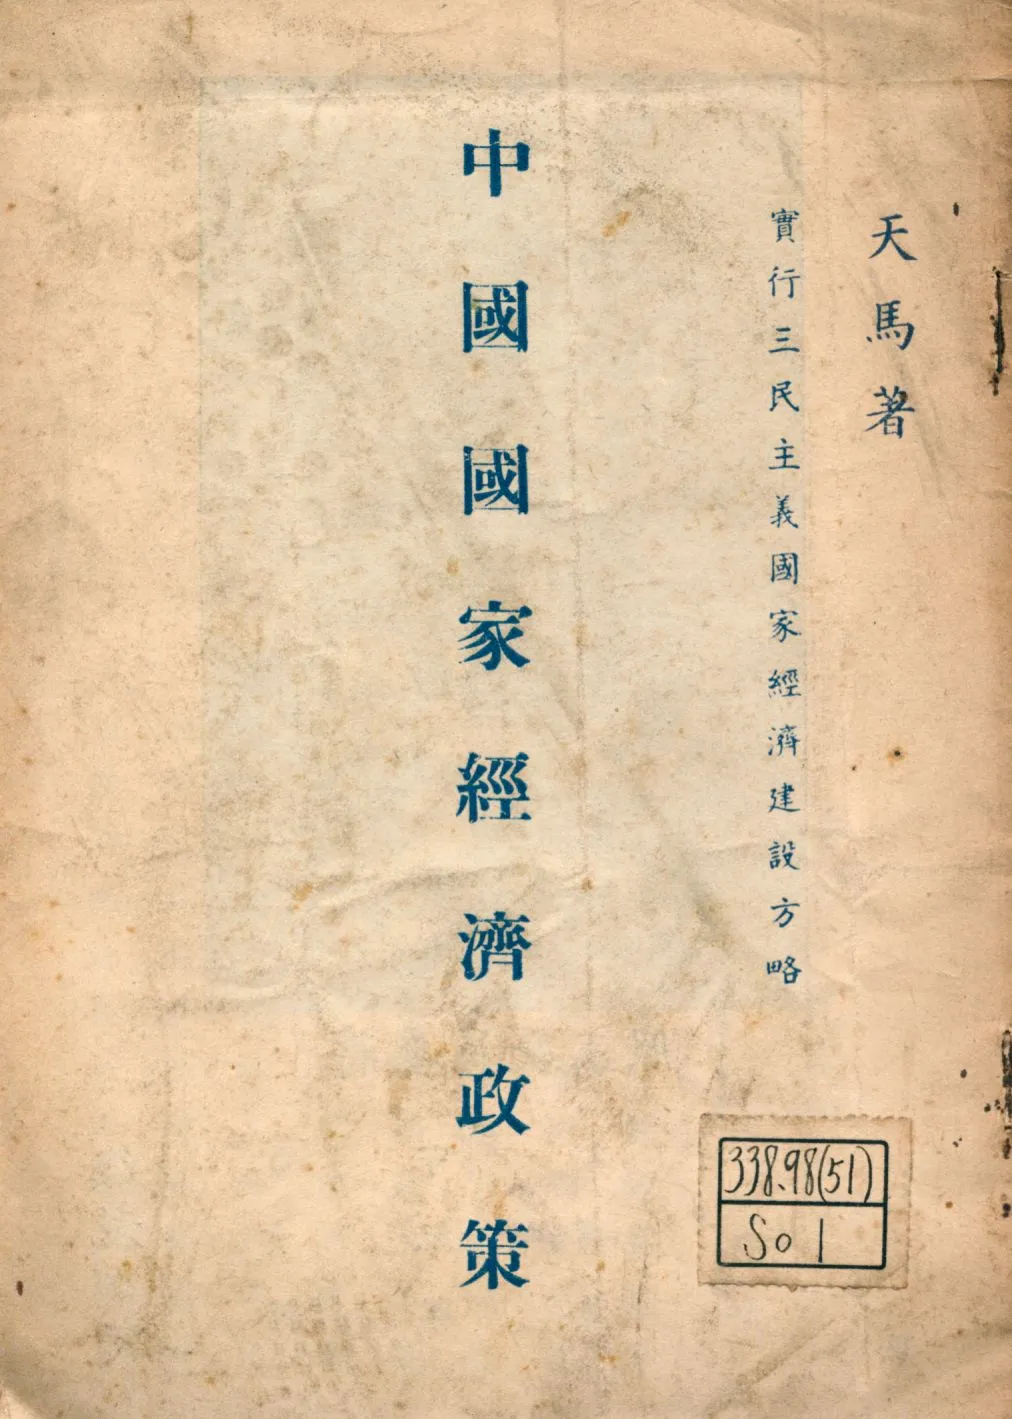 天馬著
實行三民主義國家經濟建設方略
中國國家經濟政策
338.98(51)
So 1